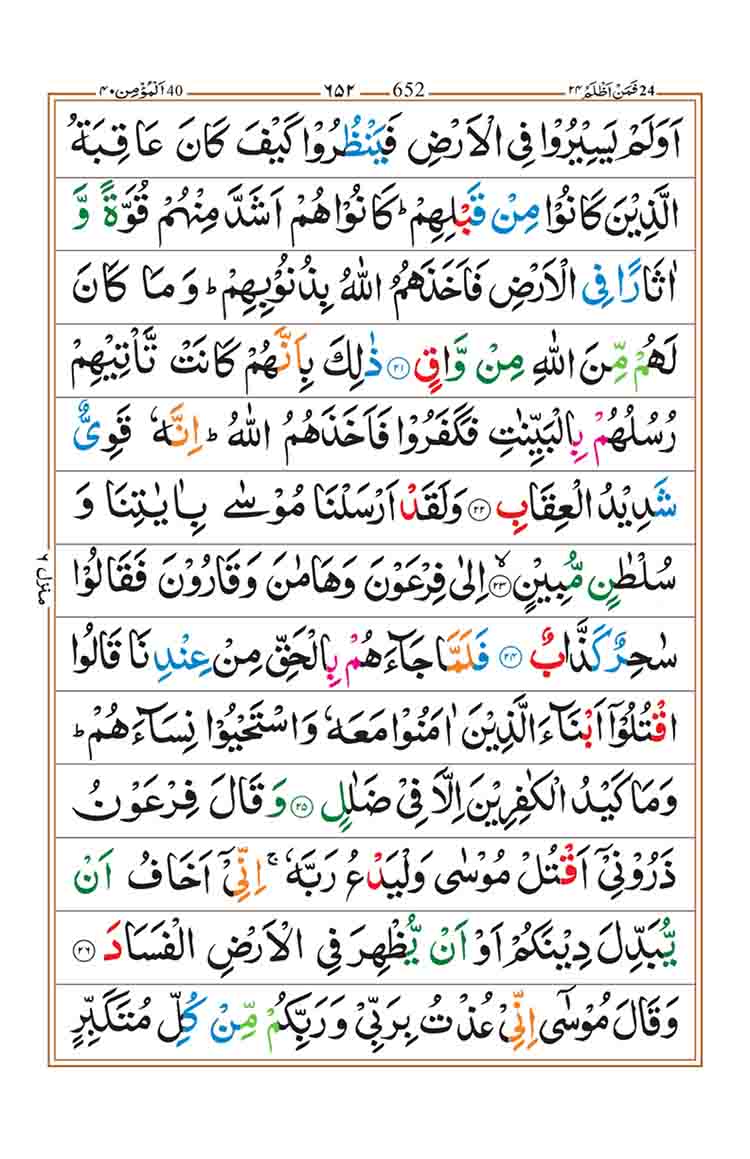 فَمَنْ اَظْلَمُ ٢٤ 24 652 ٦٥٢ اَلْمُؤْمِن ٤٠ 40
اَوَلَمْ يَسِيْرُوْا فِى الْاَرْضِ فَيَنْظُرُوْا كَيْفَ كَانَ عَاقِبَةُ
الَّذِيْنَ كَانُوْا مِنْ قَبْلِهِمْ ؕ كَانُوْا هُمْ اَشَدَّ مِنْهُمْ قُوَّةً وَّ
اٰثَارًا فِى الْاَرْضِ فَاَخَذَهُمُ اللّٰهُ بِذُنُوْبِهِمْ ؕ وَمَا كَانَ
لَهُمْ مِّنَ اللّٰهِ مِنْ وَّاقٍ ۝٢١ ذٰلِكَ بِاَنَّهُمْ كَانَتْ تَّاْتِيْهِمْ
رُسُلُهُمْ بِالْبَيِّنٰتِ فَكَفَرُوْا فَاَخَذَهُمُ اللّٰهُ ؕ اِنَّهٗ قَوِىٌّ
شَدِيْدُ الْعِقَابِ ۝٢٢ وَلَقَدْ اَرْسَلْنَا مُوْسٰى بِاٰيٰتِنَا وَ
سُلْطٰنٍ مُّبِيْنٍ ۙ۝٢٣ اِلٰى فِرْعَوْنَ وَهَامٰنَ وَقَارُوْنَ فَقَالُوْا
سٰحِرٌ كَذَّابٌ ۝٢٤ فَلَمَّا جَآءَهُمْ بِالْحَقِّ مِنْ عِنْدِنَا قَالُوا
اقْتُلُوْۤا اَبْنَآءَ الَّذِيْنَ اٰمَنُوْا مَعَهٗ وَاسْتَحْيُوْا نِسَآءَهُمْ ؕ
وَمَا كَيْدُ الْكٰفِرِيْنَ اِلَّا فِىْ ضَلٰلٍ ۝٢٥ وَقَالَ فِرْعَوْنُ
ذَرُوْنِىْۤ اَقْتُلْ مُوْسٰى وَلْيَدْعُ رَبَّهٗ ۚ اِنِّىْۤ اَخَافُ اَنْ
يُّبَدِّلَ دِيْنَكُمْ اَوْ اَنْ يُّظْهِرَ فِى الْاَرْضِ الْفَسَادَ ۝٢٦
وَقَالَ مُوْسٰۤى اِنِّىْ عُذْتُ بِرَبِّىْ وَرَبِّكُمْ مِّنْ كُلِّ مُتَكَبِّرٍ
منزل ٦